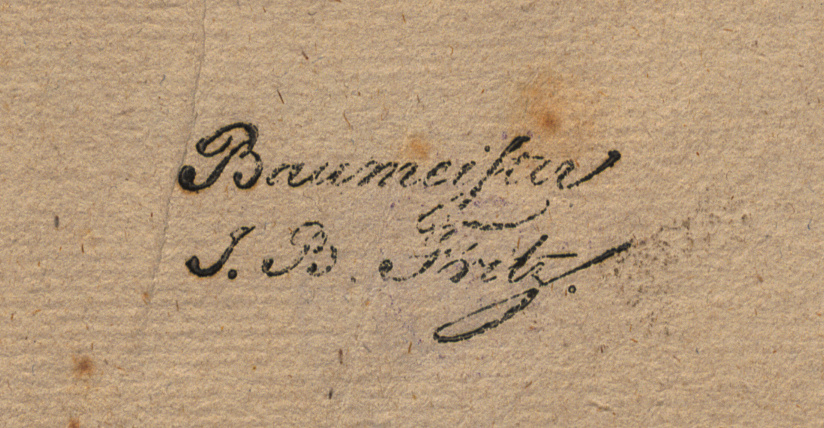 Baumeister
J. B. Fritz.